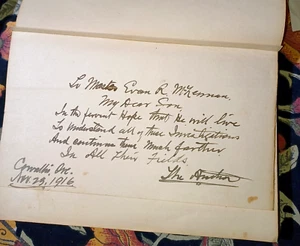 To Master Evan R. McKennan.
My Dear Son
In the fervent Hope that He will live
To Understand all of these Investigations
And continue them Much farther
In All Their Fields.
The Author
Corvallis, Ore.
Nov. 23, 1916.